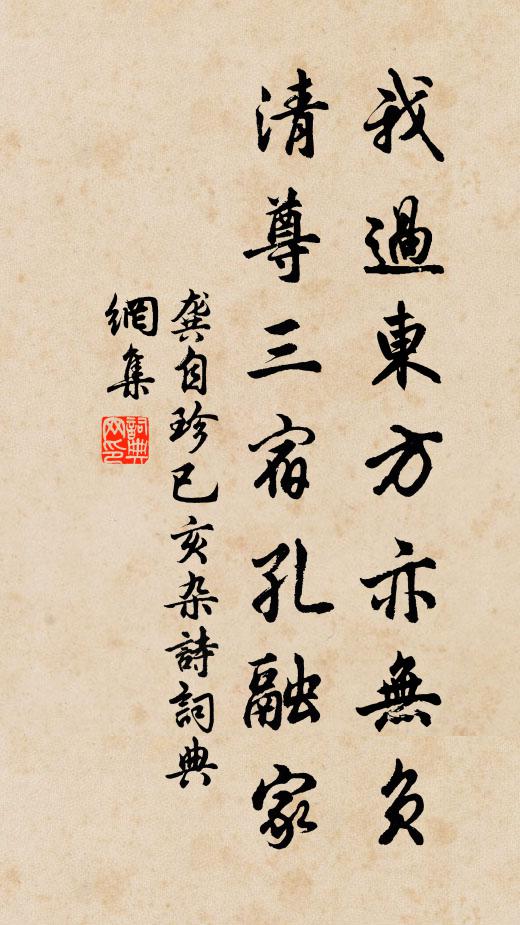 我過東方亦無負
清尊三宿孔融家
龔自珍已亥杂詩詞典
網集
詞典網印